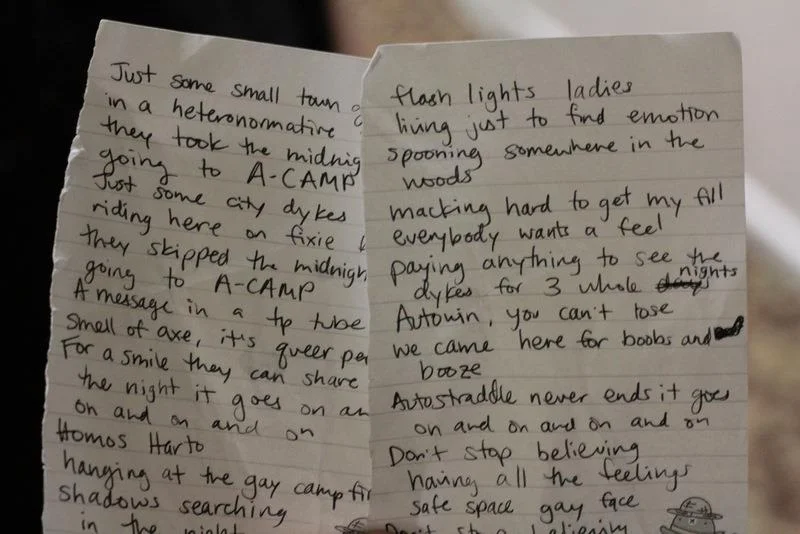 Just some small town
in a heteronormative
they took the
going to A-CAMP
Just some city dykes
riding here on fixie
they skipped the
going to A-CAMP
A message in a tp tube
Smell of axe, it's queer
For a smile they can share
the night it goes on
on and on and on
Homos Harto
hanging at the gay camp
shadows searching
in the night
flash lights ladies
living just to find emotion
spooning somewhere in the
woods
macking hard to get my fill
everybody wants a feel
paying anything to see the
dykes for 3 whole nights
Autowin, you can't lose
we came here for boobs and
booze
Autostraddle never ends it goes
on and on and on and on
Don't stop believing
having all the feelings
safe space gay face
Don't